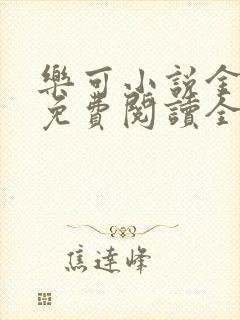 樂可小說全
免費閱讀全
焦達峰